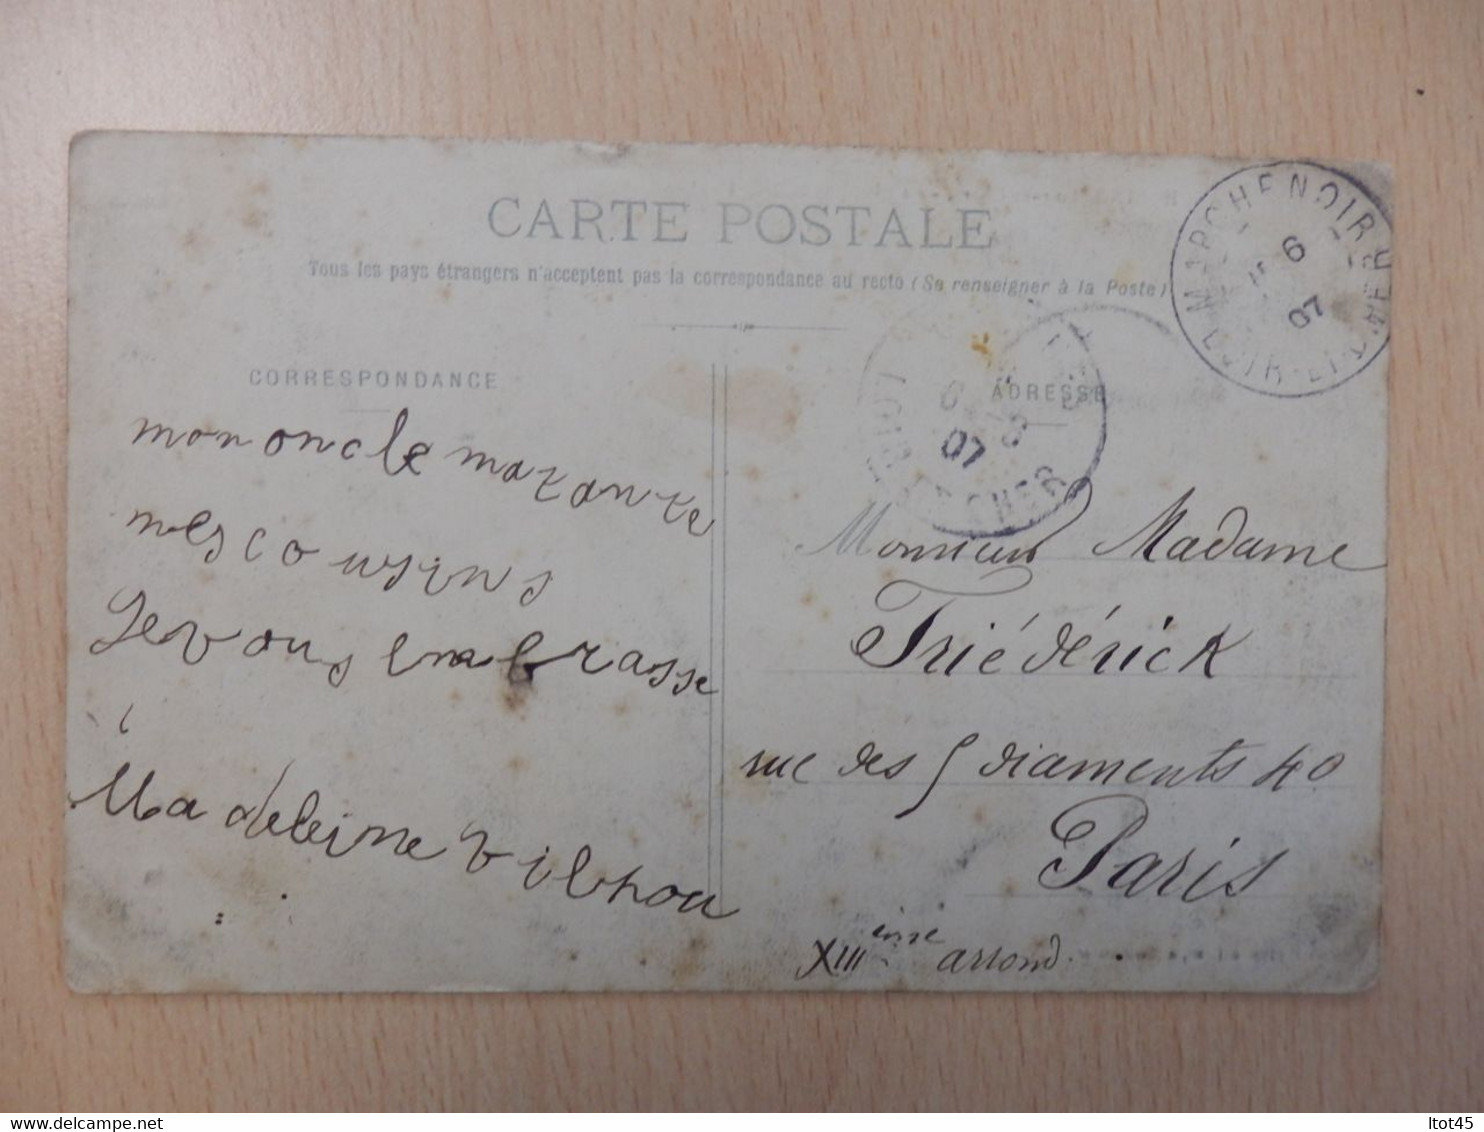 CARTE POSTALE
Tous les pays étrangers n'acceptent pas la correspondance au recto (Se renseigner à la Poste)
CORRESPONDANCE
mon oncle ma tante
mes cousins
Je vous embrasse
Madeleine Vilhou
ADRESSE
Monsieur Madame
Friédérick
rue des 5 diaments 40
Paris
XIII ème arrond.
MARCHENOIR
6
07
LOIR-ET-CHER
07
CHER
ltot45